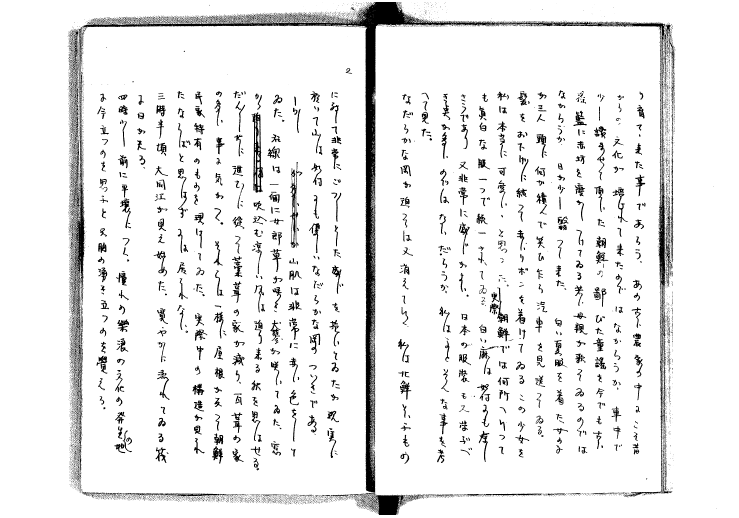 り育て来た事であらう。あの古い農家の中にこそ昔
からの文化が 壊れて来たのではなからうか。車中で
少し読ませて頂いた朝鮮の鄙びた童謡を今でも古い
藍に赤坊を 母親が歌ってゐるのでは
なからうか 日が少し翳って来た。 白い夏服を着た女の子
が三人頭に何か積んで笑ひ乍ら汽車を見送ってゐる。
髪をおさげに結って赤いリボンを着けてゐるこの少女を
私は本当に可愛いいと思った。実際朝鮮では何所へ行って
も真白な服一つで統一されてゐる。白い麻は如何にも涼し
さうであり又非常に感じがよい。日本の服装も又学ぶべ
き点が多いのではないだらうか。私はふとそんな事を考
へて見た。
なだらかな岡が現っては又消えて行く 私は北鮮といふもの
2
に対して非常にごつごつとした感じを抱いてゐたが現実に
於いて山は如何にも優しいなだらかな岡のつづきである
山肌は非常に赤い色をして
ゐた。沿線は一面に女郎草が咲き 大 が咲いてゐた。窓
から 吹込む涼しい風は迫り来る秋を思はせる。
だんだん北に進むに従って藁葺の家が減り、瓦葺の家
の多い事に気がつく。それらは一様に屋根が反って朝鮮
民家特有のものを現はしてゐた。 実際中の構造が見られ
たならばと思はずには居られない。
三時半頃 大同江が見え始めた。 緩やかに流れてゐる筏
に日が光る。
四時少し前に平壌につく。憧れの楽浪の文化の発生の地
に今立つのを思ふと 又胸の湧き立つのを覚える。